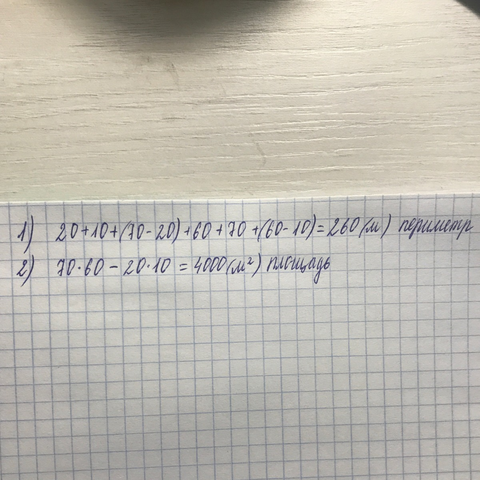 1) 20+10+(70-20)+60+70+(60-10)=260(м) периметр
2) 70·60-20·10=4000(м²) площадь